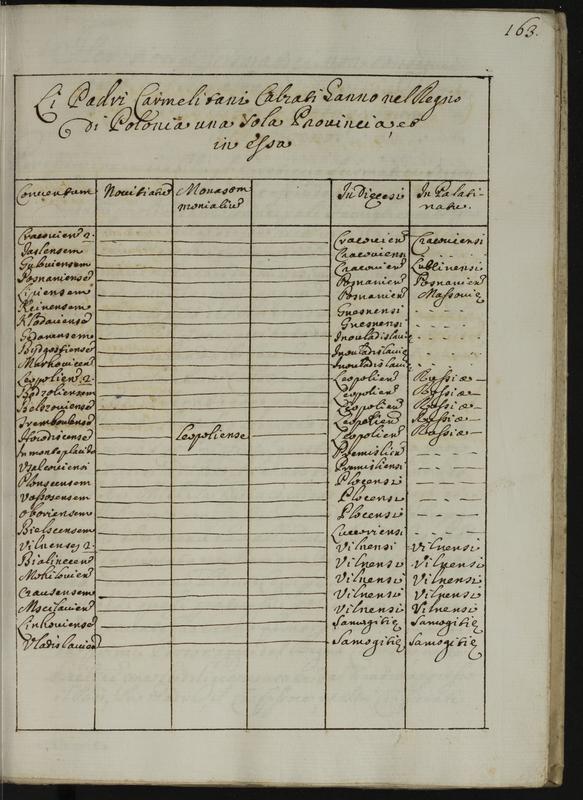 163.
Li Padri Carmelitani Calzati hanno nel Regno
di Polonia una sola Provincia, et
in essa
Conventum Novitiatu Monasem monialiu In Diecesi In Palatinatu.
Cracovien 2. Cracovien Cracoviensi
Jaslensem Cracoviensi
Cracovien Lublinensi
Posnaniense Posnanien Posnanien
Lipiensem Posnanien Massovię
Keinensem Gnesnensi
Klodaviense Gnesnensi
Gedanensem Inouladislavię
Bijdgostiense Inouladislavię
Markovicen Inouladislavię
Leopolien 2. Leopolien Russiæ
Leopolien Russiæ
Belzoviense Leopolien Russiæ
Trembovlense Leopolien Russiæ
Leopoliense Leopolien Russiæ
In monte placito Premislien
Premisliensi
Plonscensem Plocensi
Vassosensem Plocensi
Oboriensem Plocensi
Bielscensem Luceoriensi
Vilnenses 2. Vilnensi Vilnensi
Bialinecen Vilnensi Vilnensi
Mohilovien Vilnensi Vilnensi
Crausensem Vilnensi Vilnensi
Mscilavien Vilnensi Vilnensi
Linkoviense Samogitię Samogitię
Vladislavien Samogitię Samogitię